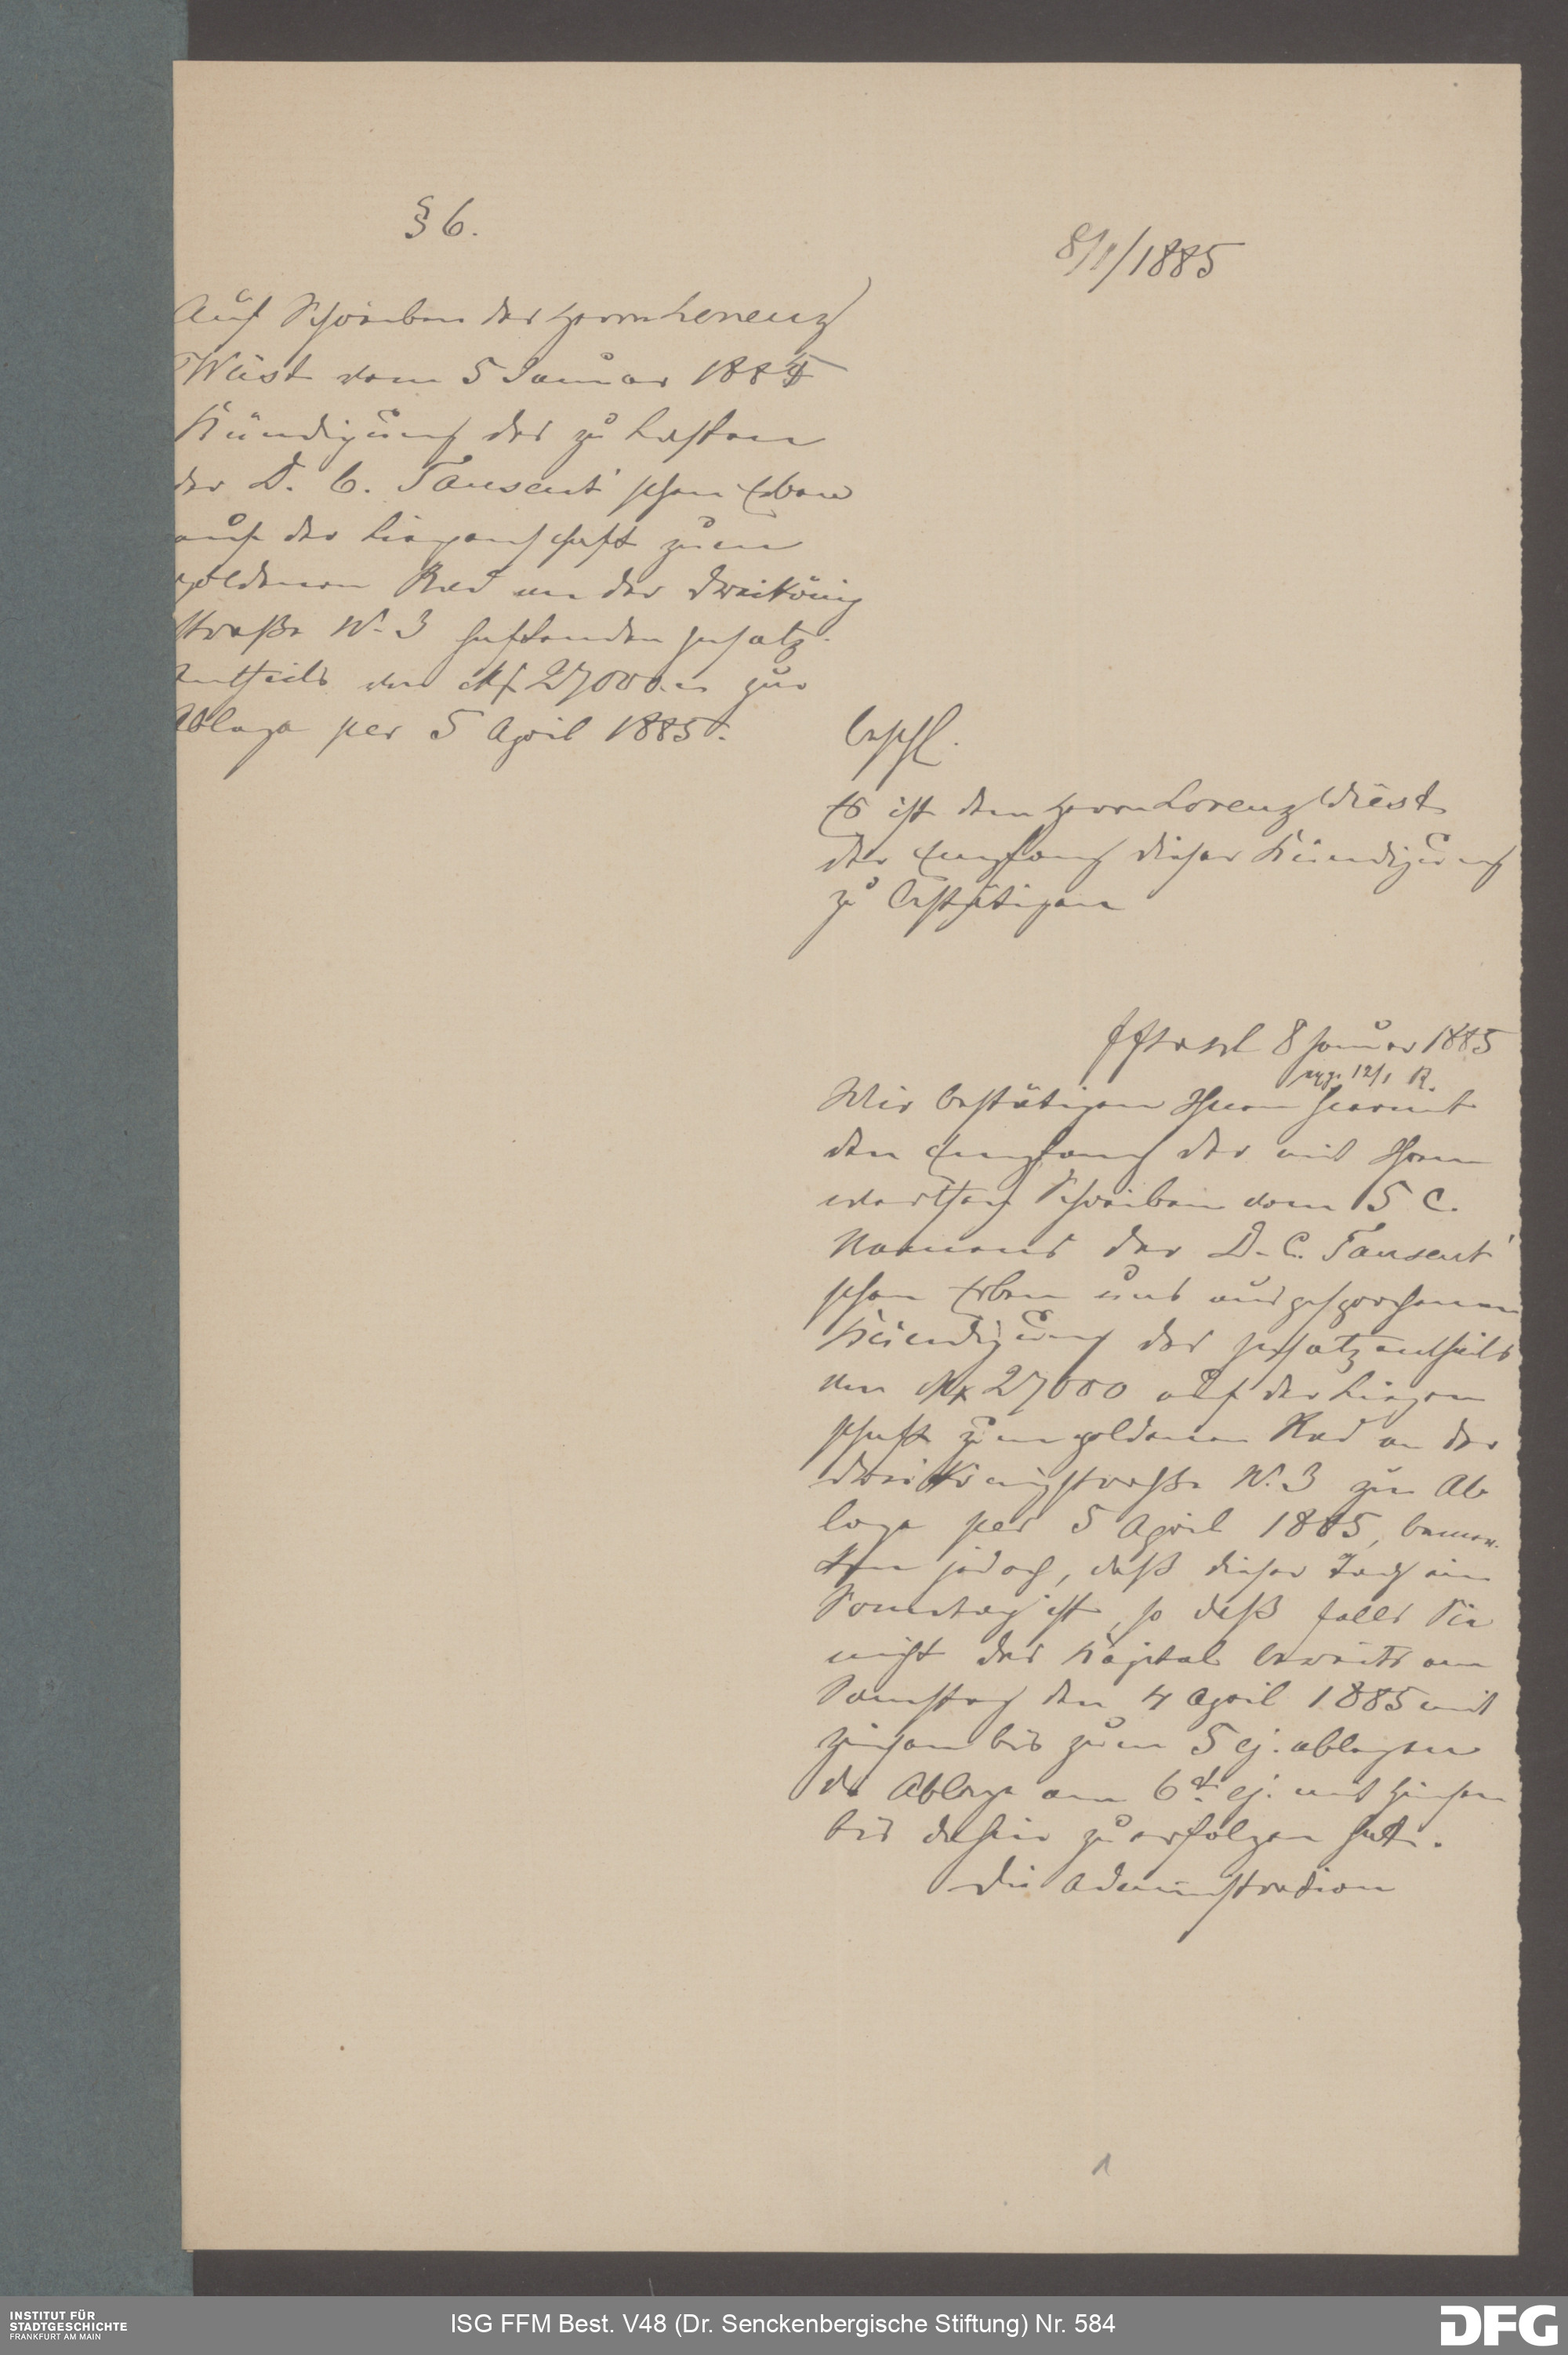 § 6.
8/1/1885
Auf Schreiben des Herrn Lorenz
Wüst vom 5 Januar 1885
Kündigung des zu Lasten
der D. C. Tausent' schen Erben
auf der Liegenschaft zum
goldenen Rad an der Dreikönig
straße No 3 haftenden Insatz-
antheils von Mk 27000.- zur
Ablage per 5 April 1885.
beschl.
Es ist dem Herrn Lorenz Wüst
der Empfang dieser Kündigung
zu bestätigen
8 Januar 1885
exp. 12/1 R.
Wir bestätigen Ihnen hiermit
den Empfang der mit Ihrem
werthen Schreiben vom 5 C.
Namens der D. C. Tausent'
schen Erben uns ausgesprochenen
Kündigung des Insatzantheils
von Mk 27000 auf der Liegen
schaft zum goldenen Rad an der
Dreikönigstraße No. 3 zur Ab
lage per 5 April 1885, bemer-
ken jedoch, daß dieser Tag ein
Sonntag ist, so daß falls Sie
nicht das Kapital bereits am
Samstag den 4 April 1885 mit
Zinsen bis zum 5 ej. ablegen
die Ablage am 6t. ej. mit Zinsen
bis dahin zu erfolgen hat.
Die Administration
1
INSTITUT FÜR
STADTGESCHICHTE
FRANKFURT AM MAIN
ISG FFM Best. V48 (Dr. Senckenbergische Stiftung) Nr. 584
DFG